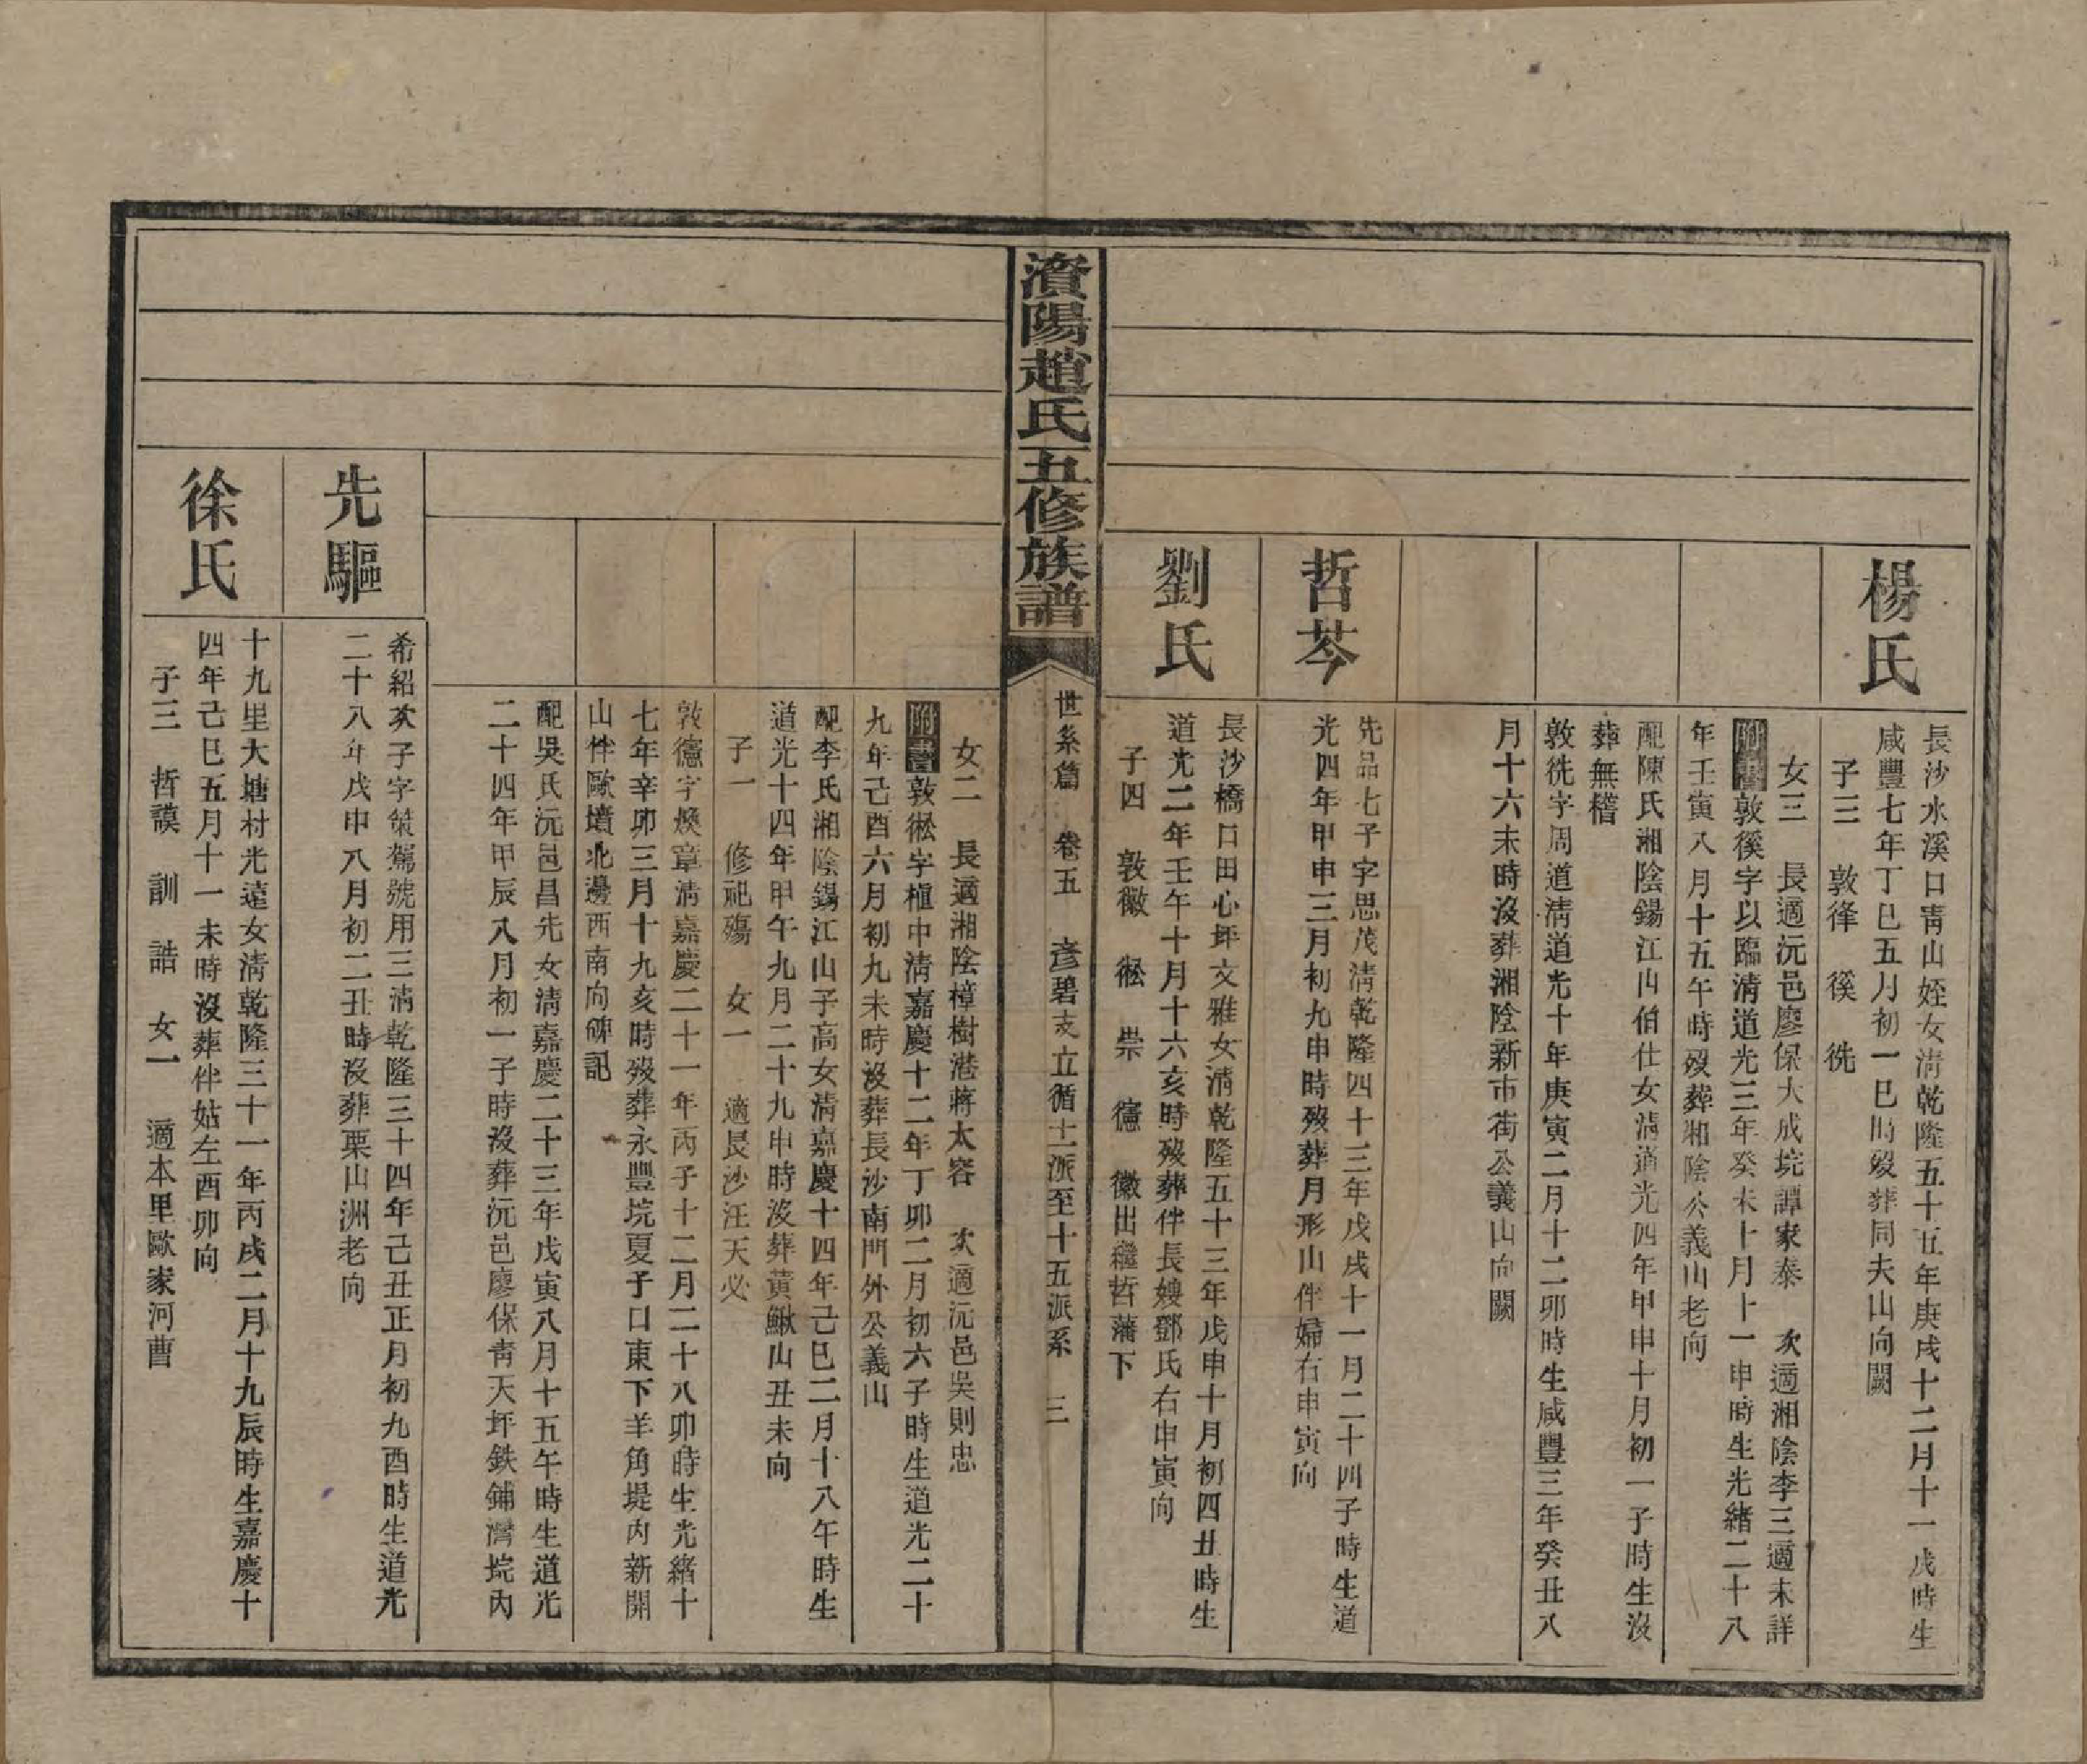 楊氏
長沙水溪口靑山姪女淸乾隆五十五年庚戌十二月十一戌時生
咸豐七年丁巳五月初一巳時歿葬同夫山向闕
子三 敦㣄 徯 㣠
女三 長適沅邑廖保大成垸譚家泰 次適湘陰李三適未詳
附書敦徯字以臨淸道光三年癸未十月十一申時生光緒二十八
年壬寅八月十五午時歿葬湘陰公義山老向
配陳氏湘陰錫江山伯仕女淸道光四年甲申十月初一子時生沒
葬無稽
敦㣠字周道淸道光十年庚寅二月十二卯時生咸豐三年癸丑八
月十六未時沒葬湘陰新市街公義山向闕
哲芩
先品七子字思茂淸乾隆四十三年戊戌十一月二十四子時生道
光四年甲申三月初九申時歿葬月形山伴婦右申寅向
劉氏
長沙橋口田心坪文雅女淸乾隆五十三年戊申十月初四丑時生
道光二年壬午十月十六亥時歿葬伴長嫂鄧氏右申寅向
子四 敦徽 崇 德 徽出繼哲藩下
資陽趙氏五修族譜
世系篇 卷五 彥碧支立循十一派至十五派系 三
女二 長適湘陰樟樹港蔣太容 次適沅邑吳則忠
附書敦字極中淸嘉慶十二年丁卯二月初六子時生道光二十
九年己酉六月初九未時沒葬長沙南門外公義山
配李氏湘陰錫江山子高女淸嘉慶十四年己巳二月十八午時生
道光十四年甲午九月二十九申時沒葬黃鰍山丑未向
子一 修祀殤 女一 適長沙汪天必
敦德字煥章淸嘉慶二十一年丙子十二月二十八卯時生光緒十
七年辛卯三月十九亥時歿葬永豐垸夏子口東下羊角堤內新開
山伴歐墳北邊西南向碑記
配吳氏沅邑昌先女淸嘉慶二十三年戊寅八月十五午時生道光
二十四年甲辰八月初一子時沒葬沅邑廖保靑天坪鉄鋪灣垸內
先驅
希紹次子字策駕號用三淸乾隆三十四年己丑正月初九酉時生道光
二十八年戊申八月初二丑時沒葬栗山洲老向
徐氏
十九里大塘村光遠女淸乾隆三十一年丙戌二月十九辰時生嘉慶十
四年己巳五月十一未時沒葬伴姑左酉卯向
子三 哲謨 訓 誥 女一 適本里歐家河曹